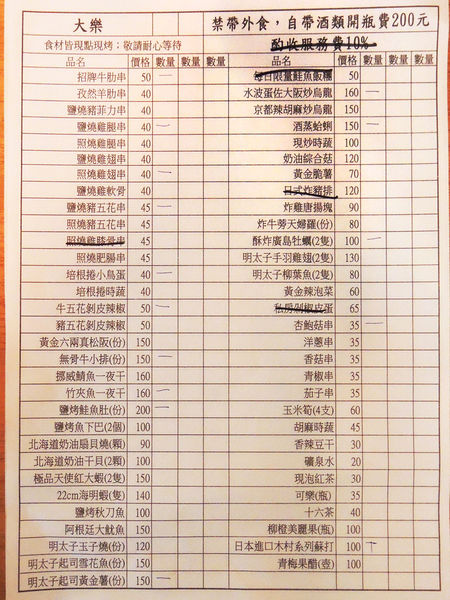 大樂
禁帶外食，自帶酒類開瓶費200元
食材皆現點現烤；敬請耐心等待
酌收服務費10%
品名 價格 數量 數量 數量 品名 價格 數量 數量 數量
招牌牛肋串 50 一 每日限量鮭魚飯糰 50
孜然羊肋串 40 水波蛋佐大阪炒烏龍 160 一
鹽燒雞菲力串 40 京都辣胡麻炒烏龍 150
鹽燒雞腿串 40 一 酒蒸蛤蜊 150 一
照燒雞腿串 40 現炒時蔬 100
鹽燒雞翅串 40 奶油綜合菇 120
照燒雞翅串 40 一 黃金脆薯 70
鹽燒雞軟骨 40 日式炸豬排 120
鹽燒豬五花串 45 一 炸雞唐揚塊 90
照燒豬五花串 45 炸牛蒡天婦羅(份) 80
照燒雞膝骨串 45 酥炸廣島牡蠣(2隻) 100 一
照燒肥腸串 45 明太子手羽雞翅(2隻) 130
培根捲小鳥蛋 40 一 明太子柳葉魚(2隻) 80
培根捲時蔬 40 黃金辣泡菜 60
牛五花剝皮辣椒 50 一 私房剝椒皮蛋 65
豬五花剝皮辣椒 50 杏鮑菇串 35 一
黃金六兩真松阪(份) 150 洋蔥串 35
無骨牛小排(份) 150 一 香菇串 35
挪威鯖魚一夜干 160 青椒串 35
竹夾魚一夜干 160 一 茄子串 35
鹽烤鮭魚肚(份) 200 一 玉米筍(4支) 60
鹽烤魚下巴(2個) 100 胡麻時蔬 45
北海道奶油扇貝燒(顆) 90 香辣豆干 30
北海道奶油干貝(2顆) 100 礦泉水 20
極品天使紅大蝦(2隻) 150 現泡紅茶 30
22cm海明蝦(隻) 140 可樂(瓶) 35
鹽烤秋刀魚 100 十六茶 40
阿根廷大魷魚 150 柳橙美麗果(瓶) 100
明太子玉子燒(份) 120 日本進口木村系列蘇打 100
明太子起司雪花魚(份) 150 青梅果醋(壺) 100
明太子起司黃金薯(份) 150 一